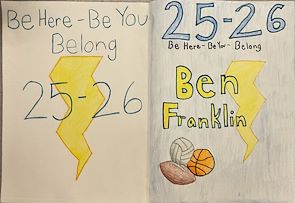 Be Here - Be You
Belong
25-26
25-26
Be Here - Be You - Belong
Ben
Franklin